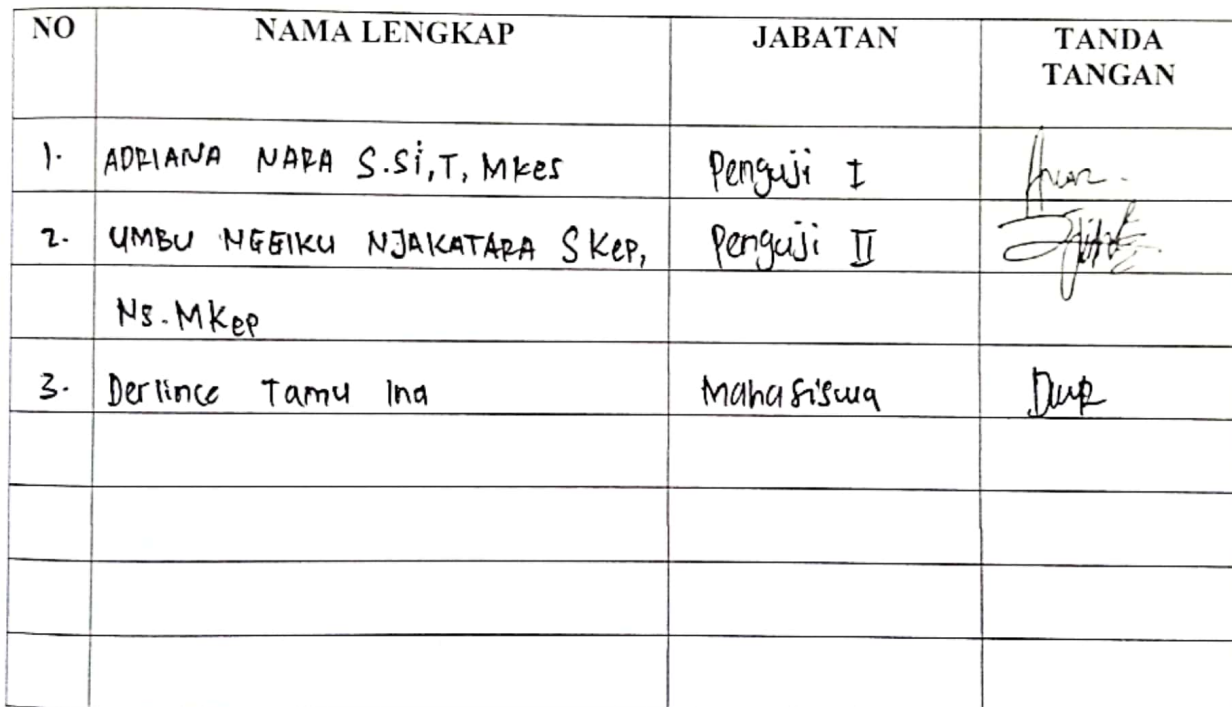 NO NAMA LENGKAP JABATAN TANDA
TANGAN
1. ADRIANA NARA S.Si,T, MKes Penguji I
2. UMBU NGGIKU NJAKATARA SKep, Penguji II
Ns. MKep
3. Derlince Tamu Ina Mahasiswa